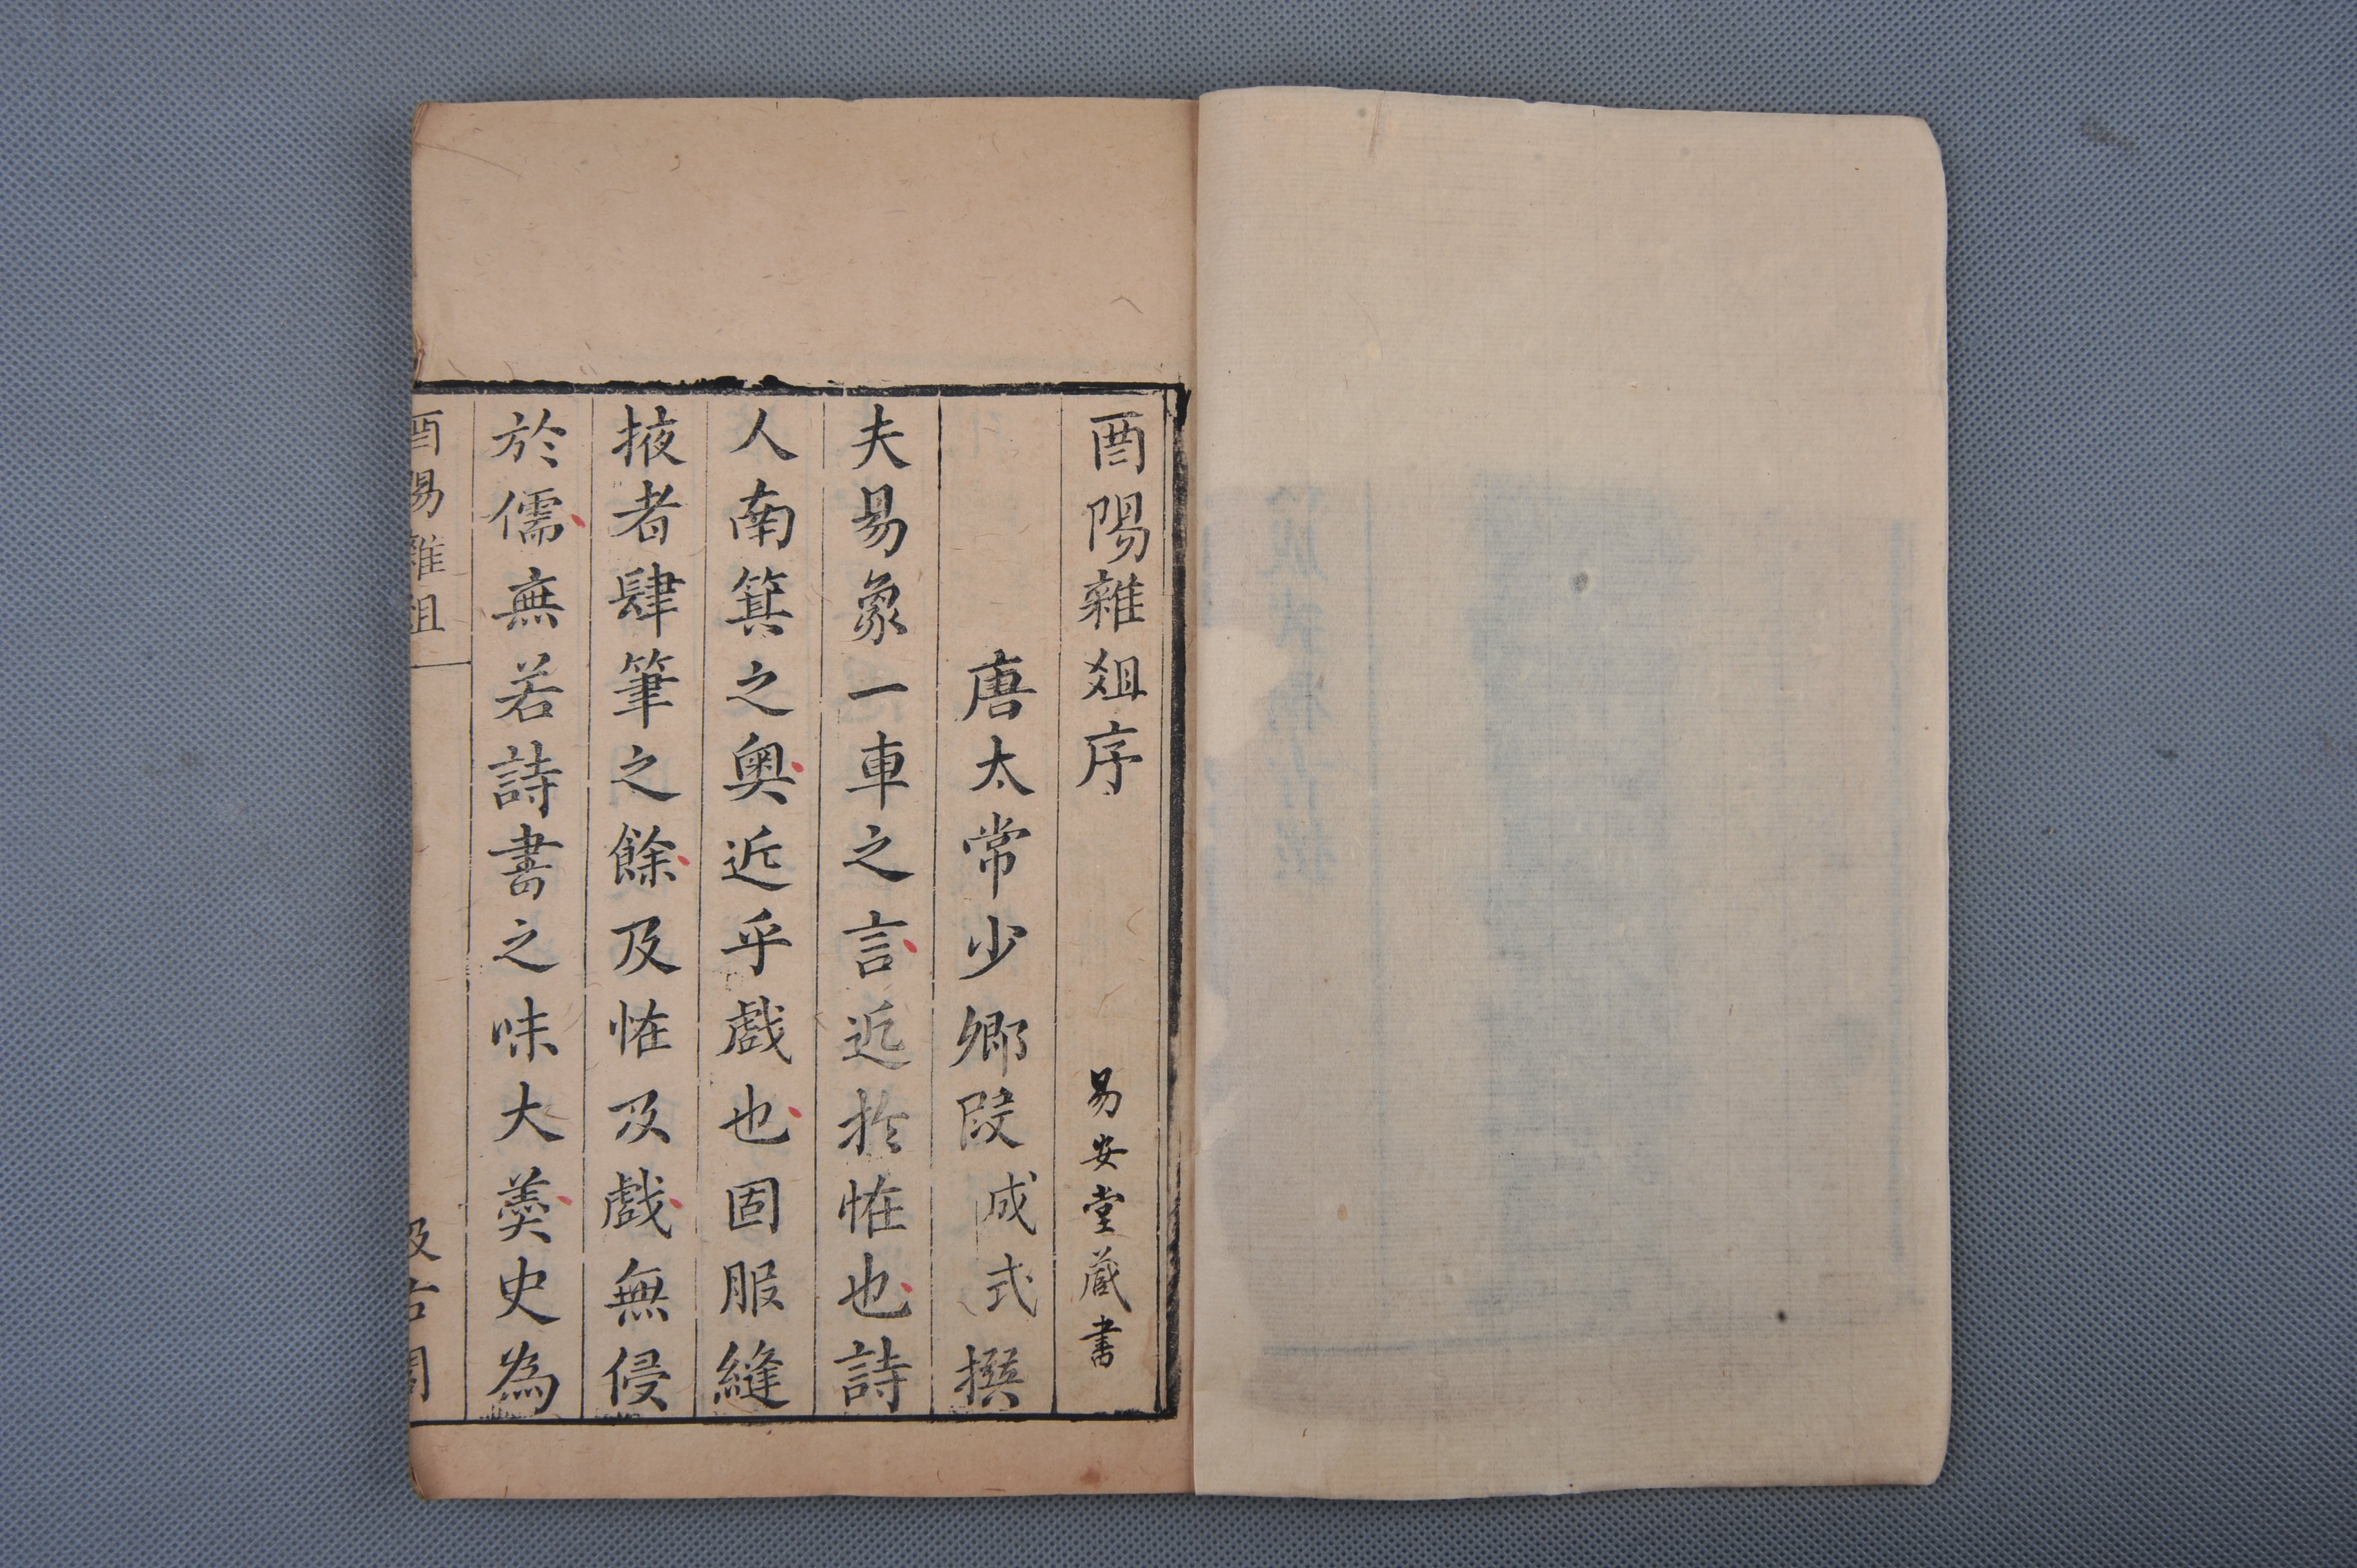 酉陽雜俎序
易安堂蔵書
唐太常少卿段成式撰
夫易象一車之言近於恠也詩
人南箕之奥近乎戲也固服縫
掖者肆筆之餘及恠及戲無侵
於儒無若詩書之味大羮史為
酉陽雜俎
汲古閣